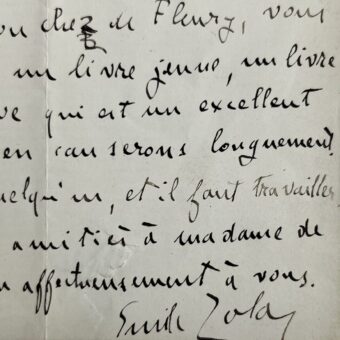 on chez de Fleury, vous
un livre jeune, un livre
ve qui est un excellent
en causerons longuement.
uelqu'un, et il faut travailler
amitiés à madame de
n affectueusement à vous.
Emile Zola